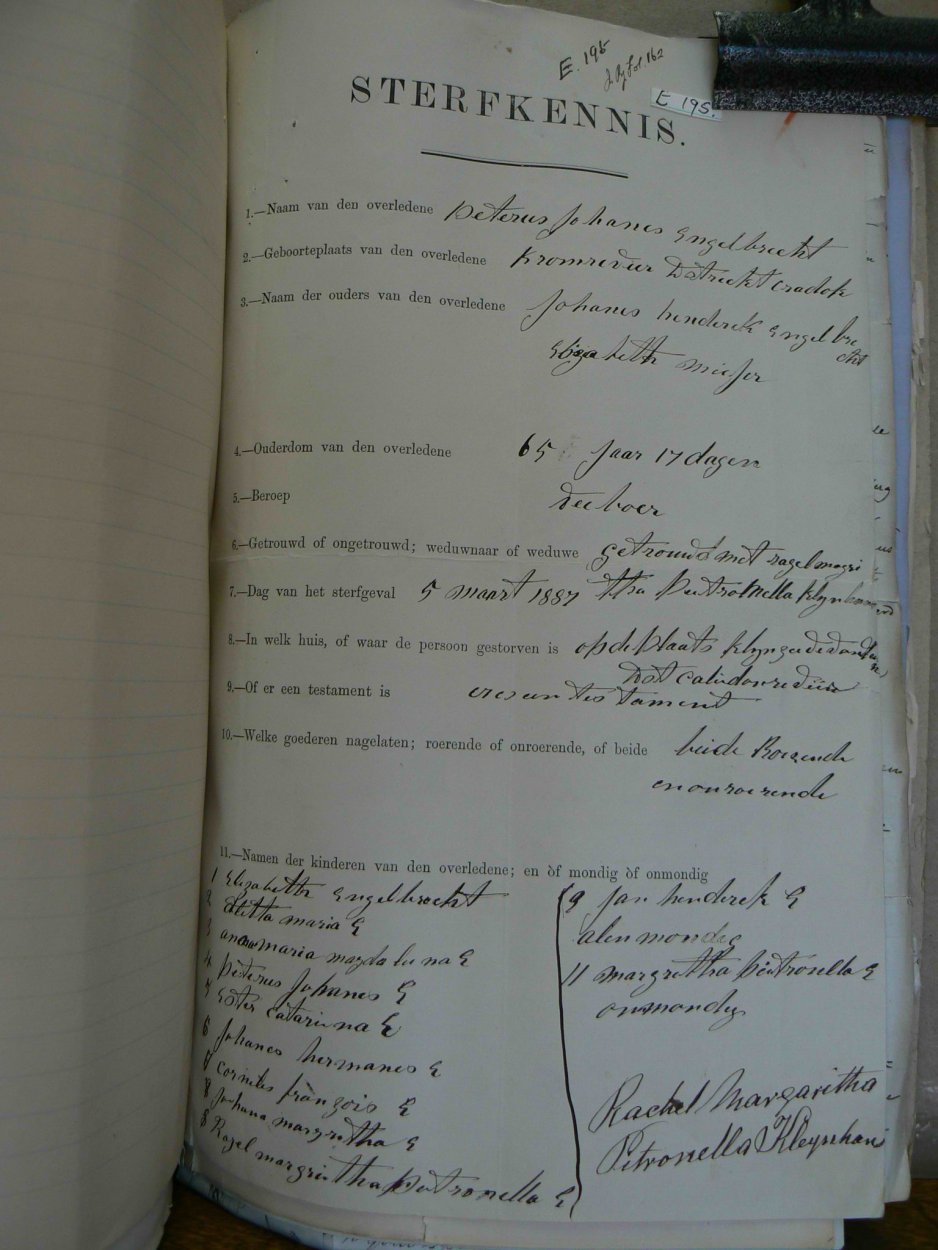 E. 195
fol. 162
E 195.
STERFKENNIS.
1.—Naam van den overledene Peterus Johanes Engelbrecht
2.—Geboorteplaats van den overledene Kromrevier Dstreckt cradok
3.—Naam der ouders van den overledene Johanes henderek Engelbre
cht
Elizabetth
4.—Ouderdom van den overledene 65 Jaar 17 dagen
5.—Beroep Veeboer
6.—Getrouwd of ongetrouwd; weduwnaar of weduwe getrouwd met ragel magri
7.—Dag van het sterfgeval 5 maart 1887 tha Peitronella
8.—In welk huis, of waar de persoon gestorven is op de Plaats
Dst caledonrevier
9.—Of er een testament is er es een testament
10.—Welke goederen nagelaten; roerende of onroerende, of beide beide Roerende
en onroerende
11.—Namen der kinderen van den overledene; en òf mondig òf onmondig
1 Elizabetth Engelbrecht
2 aletta maria E
3 anna maria magdaleena E
4 Peterus Johanes E
5 Ester catarina E
6 Johanes hermanes E
7 corniles françois E
8 Johana margretha E
8 Ragel margrietha Peitronella E
9 Jan henderek E
alen mondeg
11 margretha Peitronella E
onmondig
Rachel Margaritha
Petronella Kleynhans